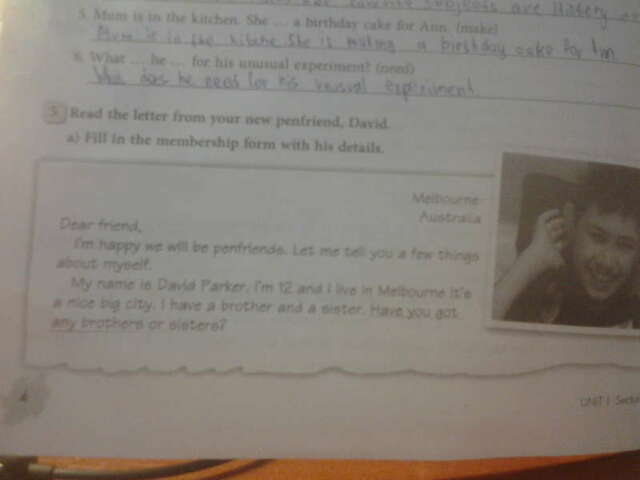 are History
5. Mum is in the kitchen. She ... a birthday cake for Ann. (make)
Mum is in the kitche She is making a birthday cake for
6. What ... he ... for his unusual experiment? (need)
What does he need for his unusual experiment
5 Read the letter from your new penfriend, David.
a) Fill in the membership form with his details.
Melbourne
Australia
Dear friend,
I'm happy we will be penfriends. Let me tell you a few things
about myself.
My name is David Parker. I'm 12 and I live in Melbourne It's
a nice big city. I have a brother and a sister. Have you got
any brothers or sisters?
4
UNIT 1